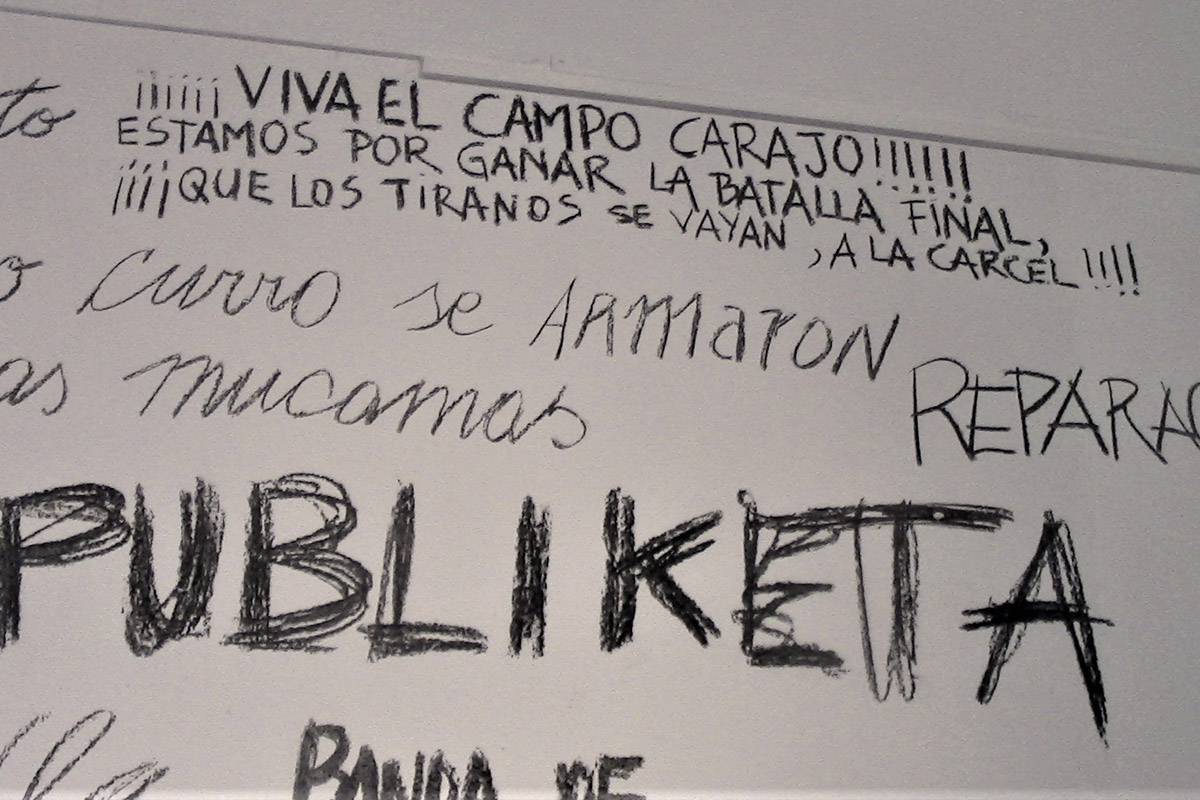 to
¡¡¡¡¡¡VIVA EL CAMPO CARAJO!!!!!!
ESTAMOS POR GANAR LA BATALLA FINAL,
¡¡¡¡QUE LOS TIRANOS SE VAYAN, A LA CARCEL!!!!
o curro se ARMARON
as mucamas
REPARAC
PUBLIKETA
BANDA DE